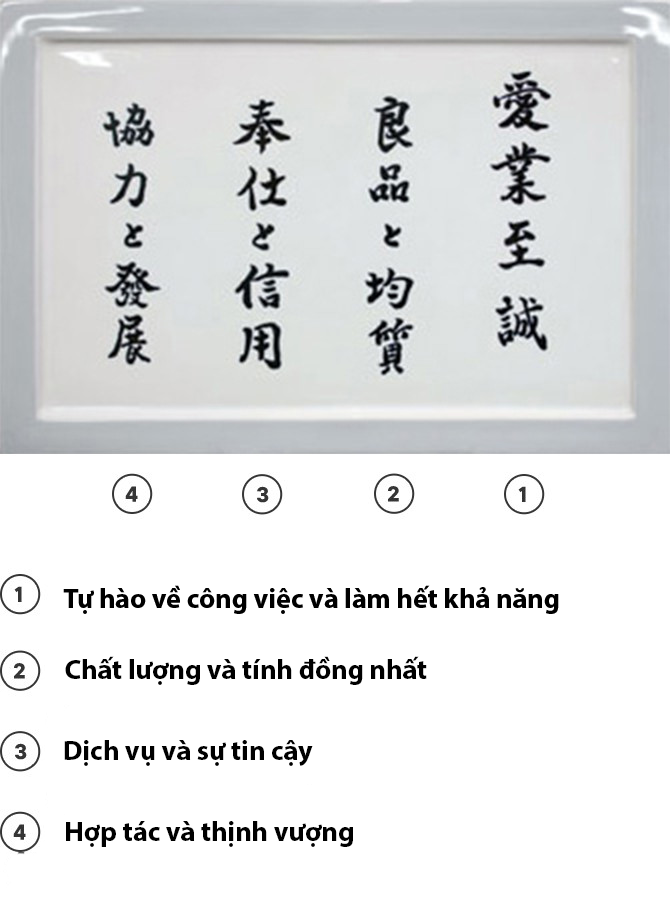 愛業至誠
良品と均質
奉仕と信用
協力と發展
4 3 2 1
1 Tự hào về công việc và làm hết khả năng
2 Chất lượng và tính đồng nhất
3 Dịch vụ và sự tin cậy
4 Hợp tác và thịnh vượng